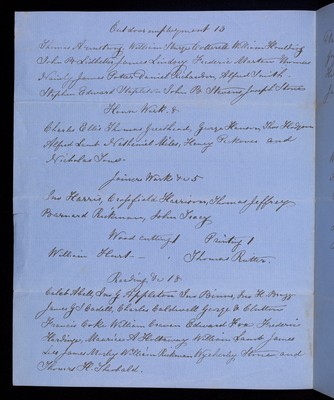 Out door employment 13
Thomas Armstrong, William Sturge Cotterell William Houlding
John B Lidbetter, James Lindsey Frederic Marten Thomas
James Rutter Daniel Richardson, Alfred Smith
Stephen Edward Stapleton John B Stevens Joseph Storrs
House Work. 8
Charles Ellis Thomas Greathead, George Henson, Thos Hodgson
Alfred Lamb Nathaniel Miles, Henry Pickance and
Nicholas Sms
Joiners Work &c 5
Jno Harris, Cropfield Harrison, Thomas Jeffrey
Bernard Rickman, John Tracy
Wood cutting 1 Printing 1
William Hurt - Thomas Rutter.
Reading &c 18
Caleb Abell, Jno G Appleton Jno Binns, Jno H Bragg
James G I Cadell, Charles Caldwell George B Clutton
Francis Coke William Cowan Edward Fox Frederic
Maurice A Holloway William Lamb James
Lees James Morley William Rickman Wycherley Stone and
Thomas H Theobald.